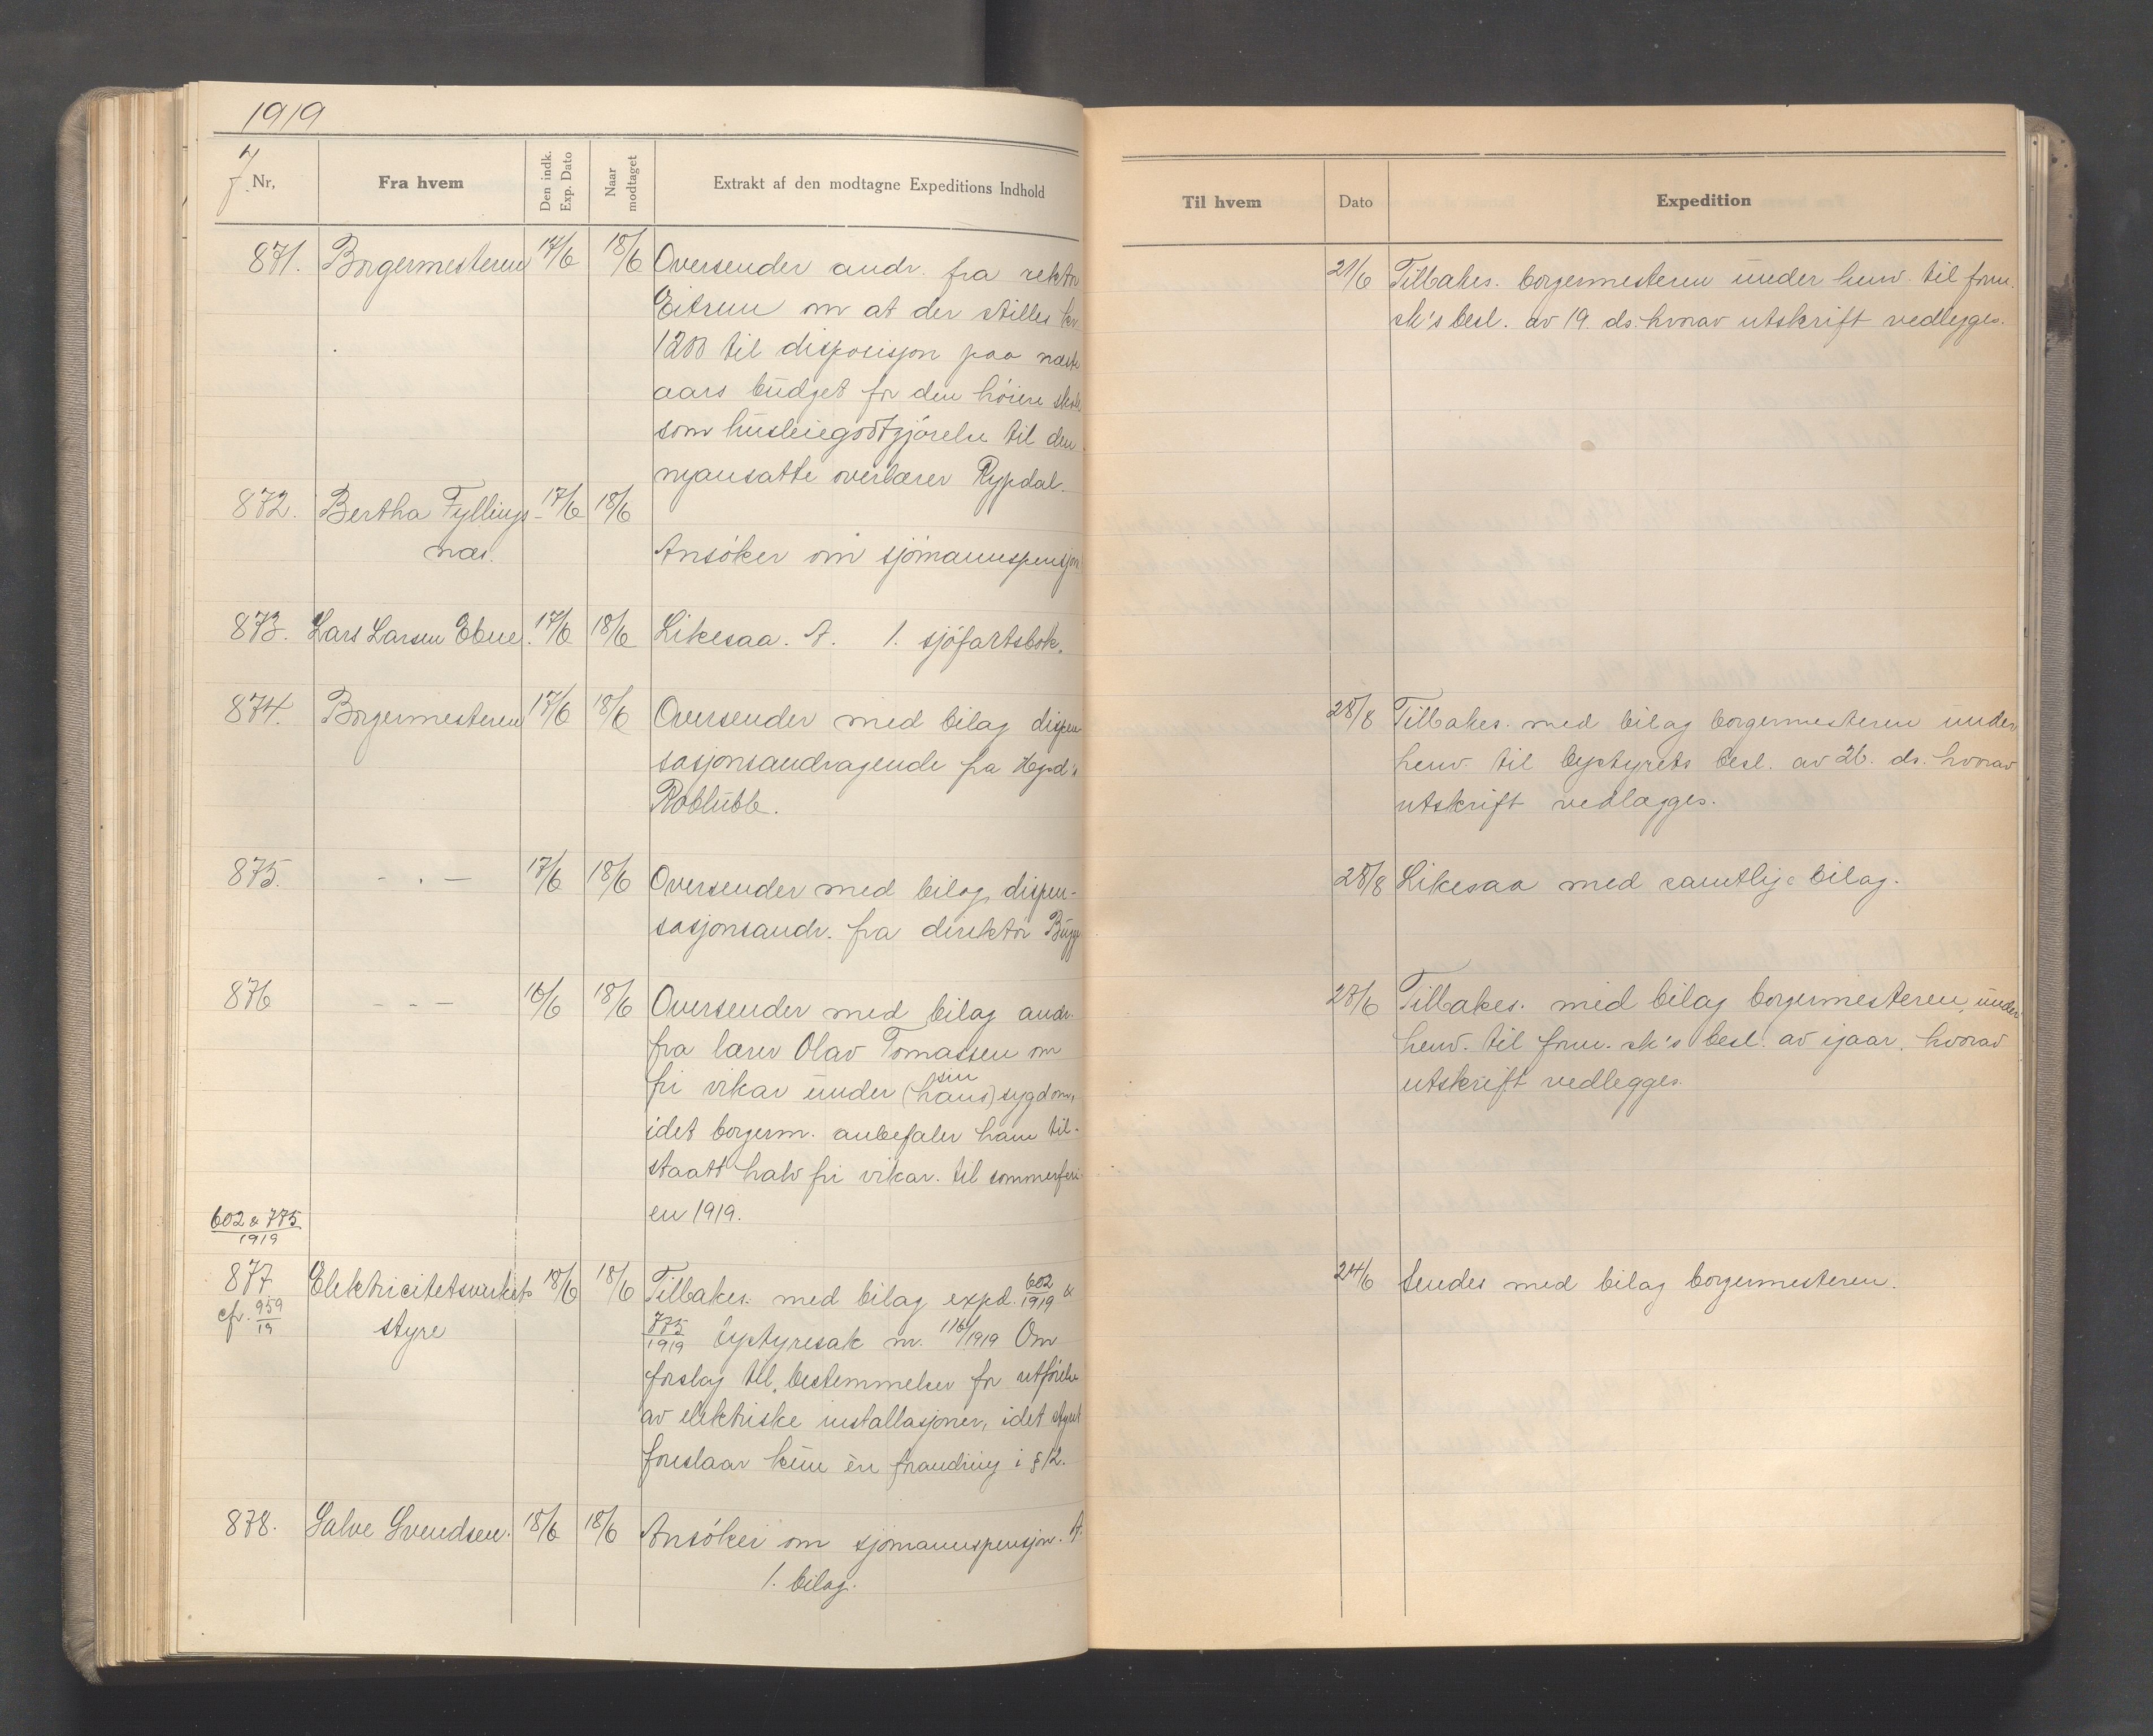 1919
J.
Nr,
Fra hvem
Den indk. Exp. Dato
Naar modtaget
Extrakt af den modtagne Expeditions Indhold
Til hvem
Dato
Expedition
871. Borgermesteren 17/6 18/6 Oversender andr. fra rektor
Eitrem om at der stilles kr.
1200 til disposisjon paa næste
aars budget for den höiere skole
som husleiegodtgjörelse til den
nyansatte overlærer Rypdal.
21/6 Tilbakes. borgermesteren under henv. til form.
sk's besl. av 19. ds. hvorav utskrift vedlegges.
872. Bertha Fyllings- 17/6 18/6
næs.
Ansöker om sjömannspensjon
873. Lars Larsen Ebne. 17/6 18/6 Likesaa. A. 1. sjöfartsbok.
874. Borgermesteren 17/6 18/6 Oversender med bilag dispen
sasjonsandragende fra Hgsd's
Roklubb.
28/8 Tilbakes. med bilag borgermesteren under
henv. til bystyrets besl. av 26. ds. hvorav
utskrift vedlægges.
875. - . - 17/6 18/6 Oversender med bilag dispen-
sasjonsandr. fra direktör Bugge
28/8 Likesaa med samtlige bilag.
876 - - - 16/6 18/6 Oversender med bilag andr.
fra lærer Olav Tomassen om
fri vikar under (hans) sin sygdom,
idet borgerm. anbefaler ham til-
staatt halv fri vikar. til sommerferi-
en 1919.
28/6 Tilbakes. med bilag borgermesteren, under
henv. til form. sk's besl. av igaar, hvorav
utskrift vedlegges.
602 & 775
1919
877 Elektricitetsverkets 18/6 18/6 Tilbakes. med bilag expd. 602/1919 &
cfr. 959/19 styre
775/1919 bystyresak nr. 116/1919 Om
forslag til bestemmelser for utförelse
av elektriske installasjoner, idet styret
foreslaar kun én forandring i § 12.
24/6 Sendes med bilag borgermesteren.
878. Salve Svendsen. 18/6 18/6 Ansöker om sjömannspensjon. A.
1. bilag.